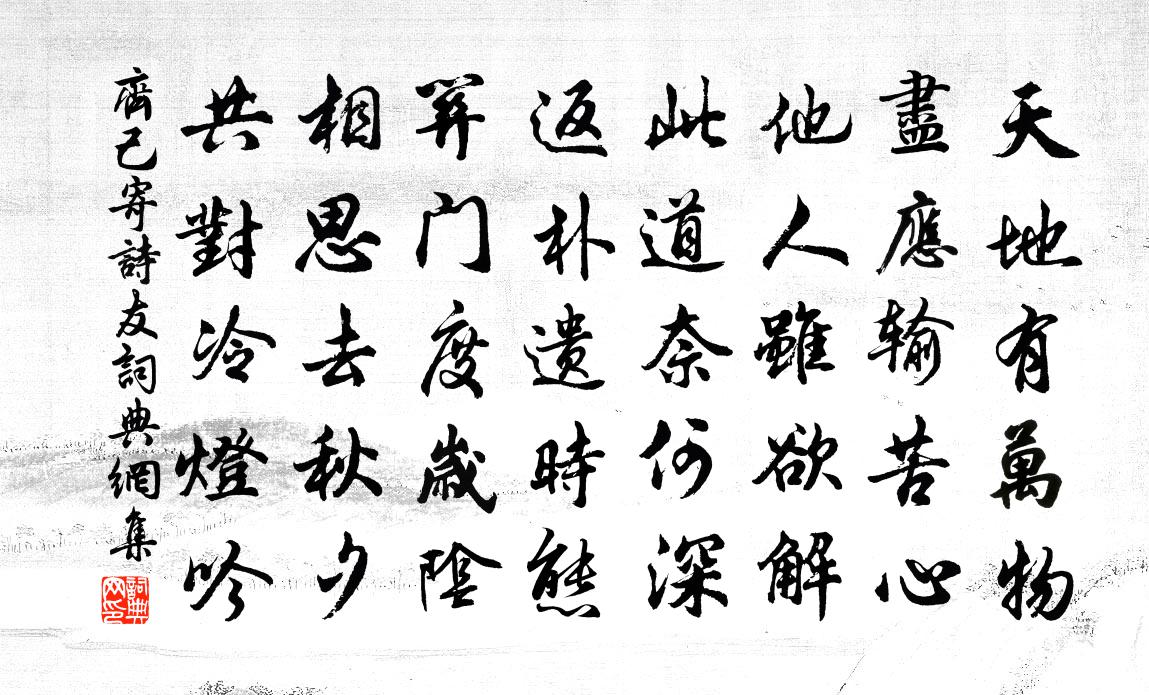 天地有萬物
盡應輸苦心
他人雖欲解
此道奈何深
返朴遺時態
關門度歲陰
相思去秋夕
共對冷燈吟
齊己寄詩友詞典網集
詞典网印